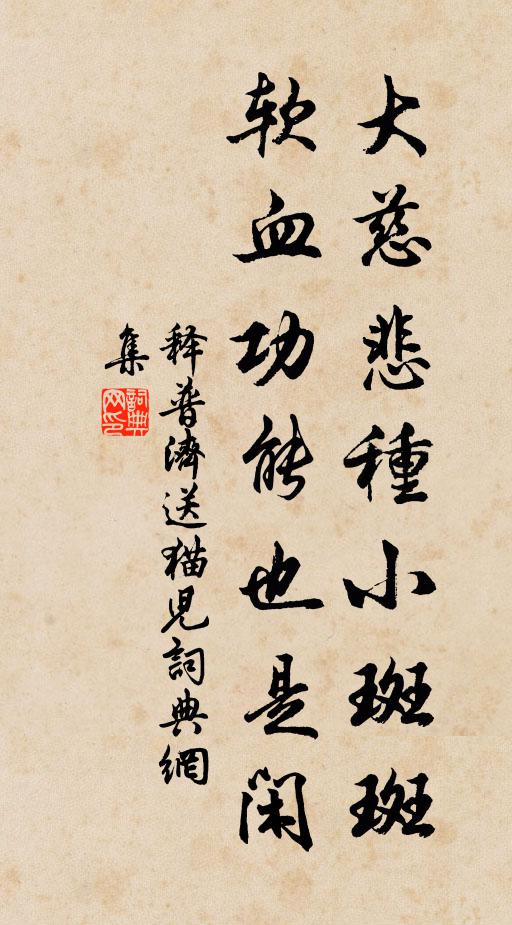 大慈悲種小斑斑
软血功能也是闲
释普濟送猫児詞典網
集
詞典网印